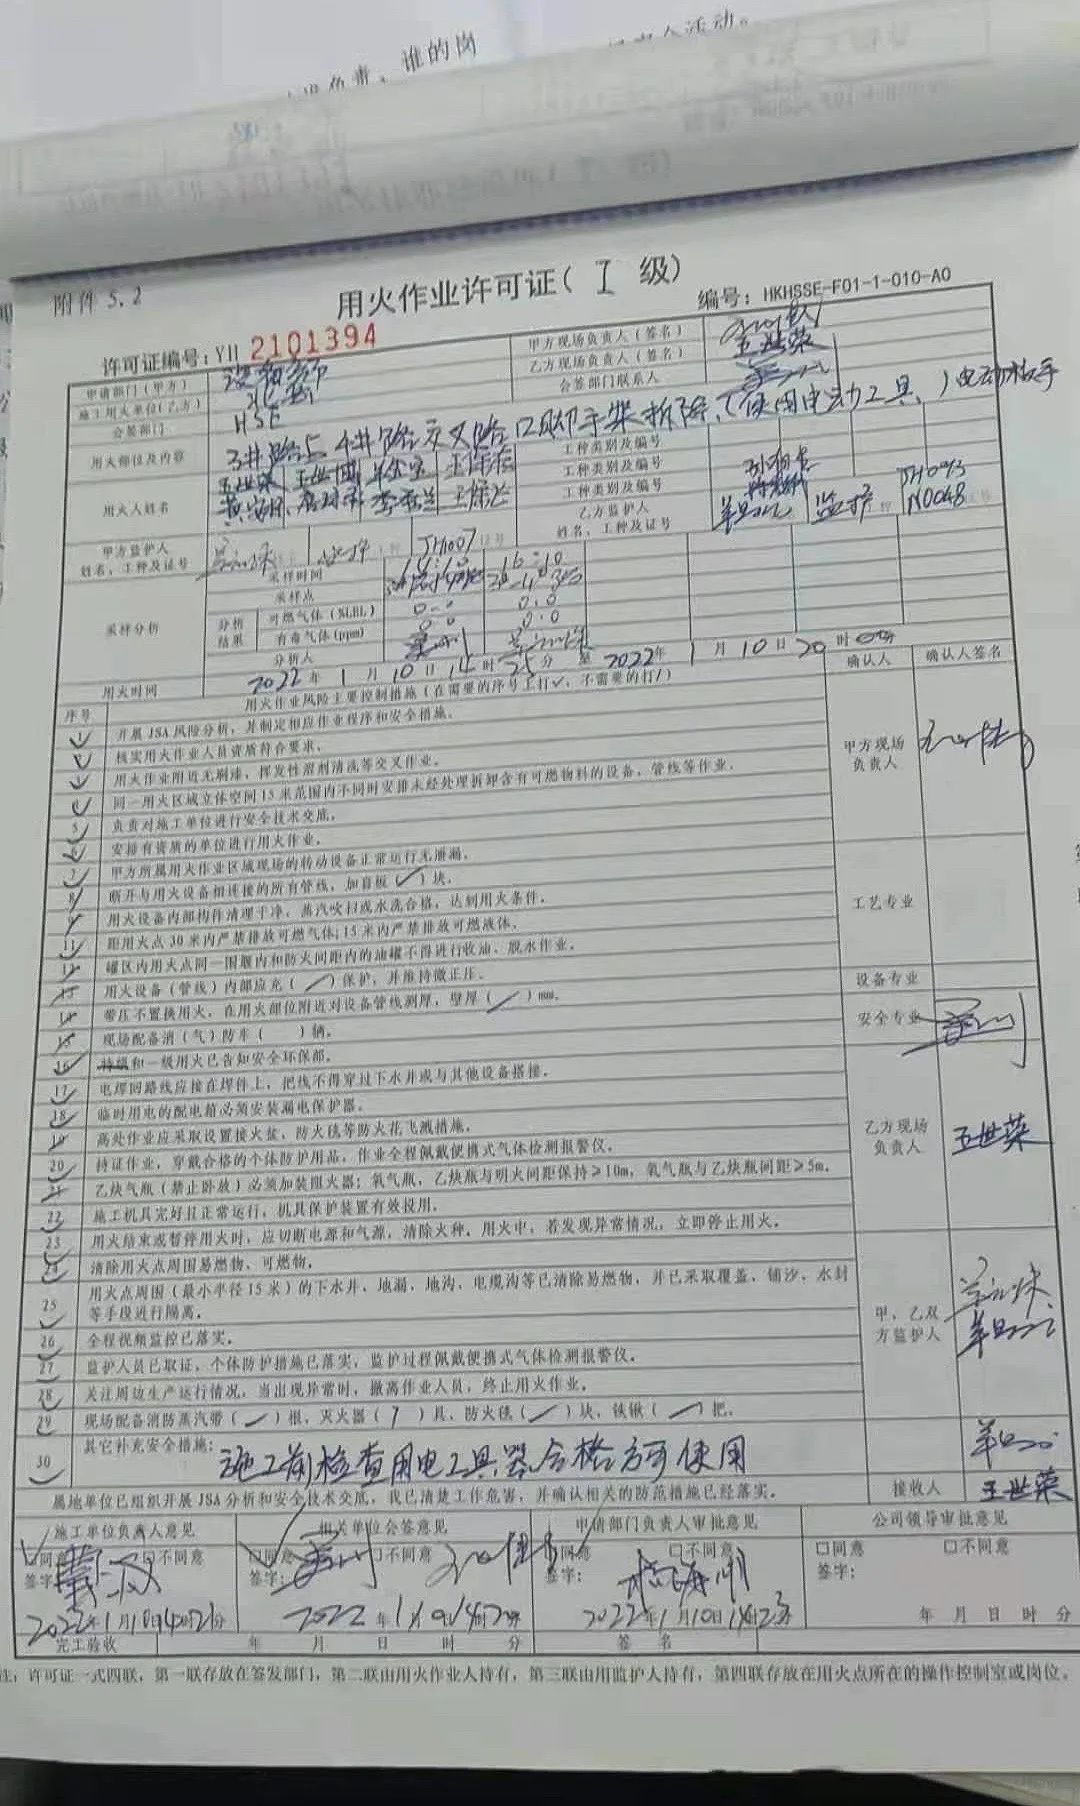 谁的岗
人活动。
附件 5.2
用火作业许可证( I 级)
编号: HKHSSE-F01-1-010-A0
许可证编号: YH 2101394
甲方现场负责人(签名)
申请部门(甲方)
乙方现场负责人(签名) 王世荣
施工用火单位(乙方)
会签部门联系人
会签部门 HSE
用火部位及内容 3#路与4#路交叉路口脚手架拆除(使用电动工具、)电动扳手
工种类别及编号
工种类别及编号
用火人姓名
工种类别及编号
乙方监护人 监护 JH0093
姓名、工种及证号 N0048
甲方监护人 监护 JH1007
姓名、工种及证号
采样时间 14:10 16:10
采样点
采样分析
分析结果
可燃气体(%LEL) 0.0 0.0
有毒气体(ppm) 0.0 0.0
分析人
用火时间 2022年 1 月 10 日 14 时 25 分 至 2022年 1 月 10 日 20 时 00分
序号 用火作业风险主要控制措施(在需要的序号上打✓, 不需要的打/) 确认人 确认人签名
1 开展 JSA 风险分析, 并制定相应作业程序和安全措施。
2 核实用火作业人员资质符合要求。
3 用火作业附近无刷漆, 挥发性溶剂清洗等交叉作业。
4 同一用火区域立体空间 15 米范围内不同时安排未经处理拆卸含有可燃物料的设备、管线等作业。
甲方现场负责人
5 负责对施工单位进行安全技术交底。
6 安排有资质的单位进行用火作业。
7 甲方所属用火作业区域现场的转动设备正常运行无泄漏。
8 断开与用火设备相连接的所有管线, 加盲板( / )块。
9 用火设备内部构件清理干净, 蒸汽吹扫或水洗合格, 达到用火条件。
工艺专业
11 距用火点 30 米内严禁排放可燃气体; 15 米内严禁排放可燃液体。
12 罐区内用火点同一围堰内和防火间距内的油罐不得进行收油、脱水作业。
13 用火设备(管线)内部应充( / )保护, 并维持微正压。
设备专业
14 带压不置换用火, 在用火部位附近对设备管线测厚, 壁厚( / )mm。
15 现场配备消(气)防车( )辆。
安全专业
16 特级和一级用火已告知安全环保部。
17 电焊回路线应接在焊件上, 把线不得穿过下水井或与其他设备搭接。
18 临时用电的配电箱必须安装漏电保护器。
19 高处作业应采取设置接火盆、防火毯等防火花飞溅措施。
乙方现场负责人 王世荣
20 持证作业, 穿戴合格的个体防护用品, 作业全程佩戴便携式气体检测报警仪。
21 乙炔气瓶(禁止卧放)必须加装阻火器; 氧气瓶、乙炔瓶与明火间距保持≥10m, 氧气瓶与乙炔瓶间距≥5m。
22 施工机具完好且正常运行, 机具保护装置有效投用。
23 用火结束或暂停用火时, 应切断电源和气源, 清除火种。用火中, 若发现异常情况, 立即停止用火。
24 清除用火点周围易燃物、可燃物。
25 用火点周围(最小半径 15 米)的下水井、地漏、地沟、电缆沟等已清除易燃物, 并已采取覆盖、铺沙、水封
等手段进行隔离。
甲、乙双方监护人
26 全程视频监控已落实。
27 监护人员已取证, 个体防护措施已落实, 监护过程佩戴便携式气体检测报警仪。
28 关注周边生产运行情况, 当出现异常时, 撤离作业人员, 终止用火作业。
29 现场配备消防蒸汽带( / )根, 灭火器( )具, 防火毯( / )块, 铁锹( / )把。
30 其它补充安全措施: 施工前检查用电工具器合格方可使用
属地单位已组织开展 JSA 分析和安全技术交底, 我已清楚工作危害, 并确认相关的防范措施已经落实。 接收人 王世荣
施工单位负责人意见 相关单位会签意见 申请部门负责人审批意见 公司领导审批意见
同意 □不同意 同意 □不同意 □同意 □不同意 □同意 □不同意
签字: 签字: 签字: 签字:
2022年1月10日14时21分 2022年1月10日14时2分 2022年1月10日14时23分 年 月 日 时 分
完工验收 年 月 日 时 分 签 名
注: 许可证一式四联, 第一联存放在签发部门, 第二联由用火作业人持有, 第三联由用监护人持有, 第四联存放在用火点所在的操作控制室或岗位。